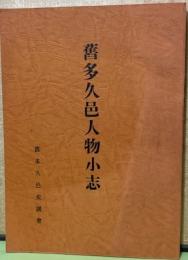 舊多久邑人物小志
舊多久邑史談會